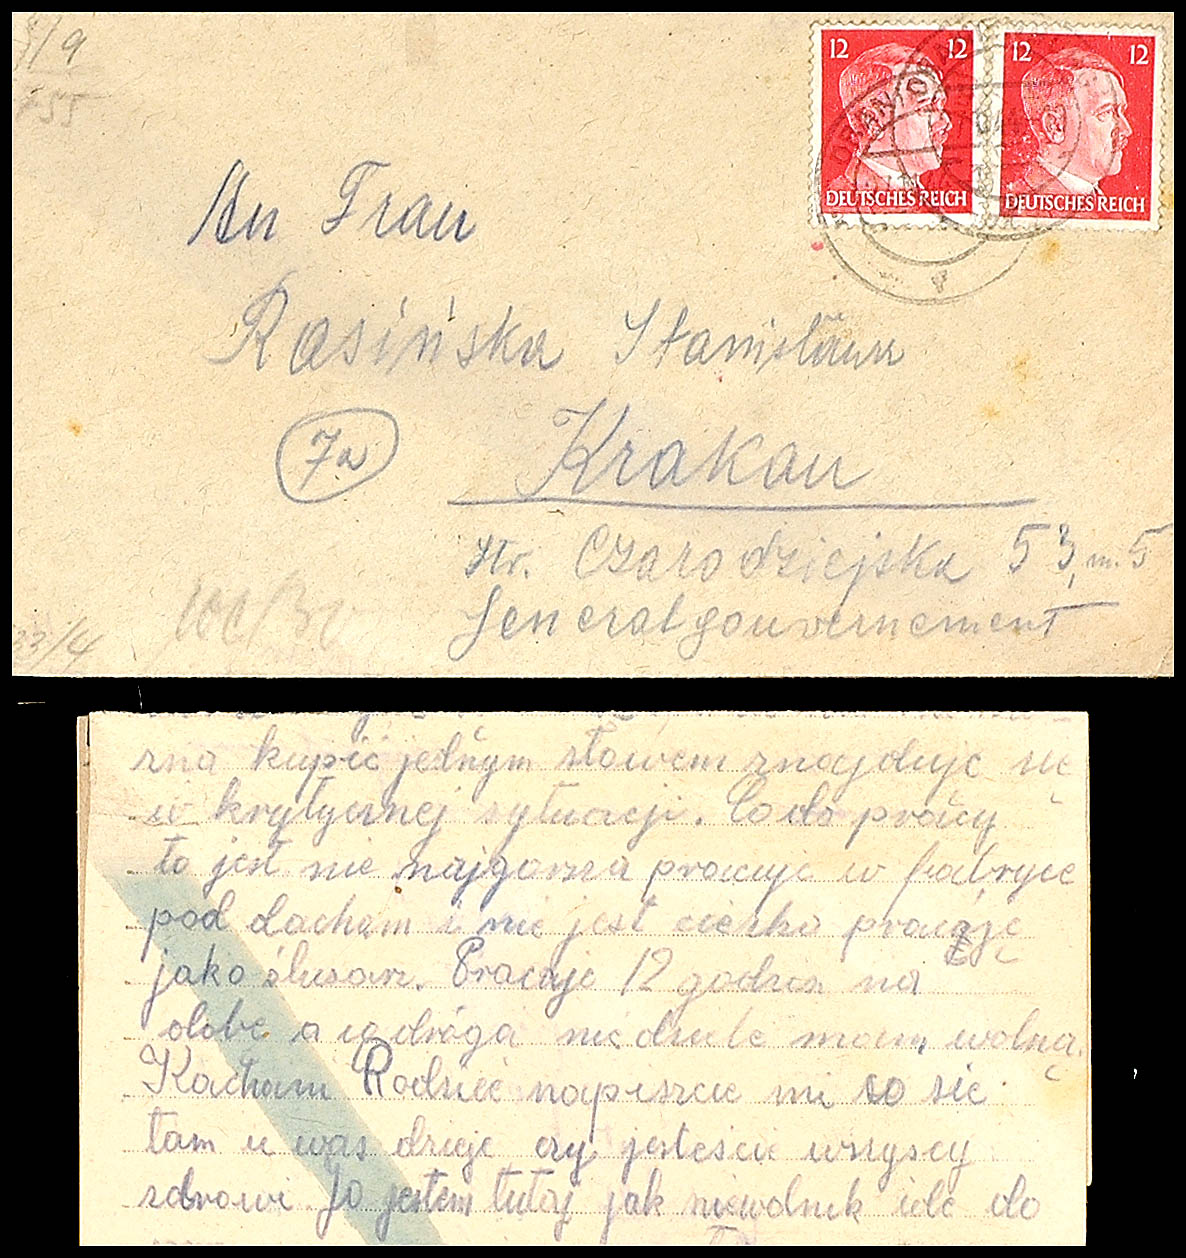 12 12 12 12
DEUTSCHES REICH DEUTSCHES REICH
An Frau
Rasińska Stanisława
7a
Krakau
str. Czarodziejska 53, m. 5
Generalgouvernement
33/4
żna kupić jednym słowem znajduje się
w krytycznej sytuacji. Co do pracy
to jest nie najgorsza pracuje w fabryce
pod dacham i nie jest cieżko pracuje
jako ślusarz. Pracuje 12 godzin na
dobe a co drógą niedziele mam wolną.
Kocham Rodzice napiszcie mi co sie
tam u was dzieje czy jesteście wszyscy
zdrowi. Ja jestem tutaj jak niewolnik ide do